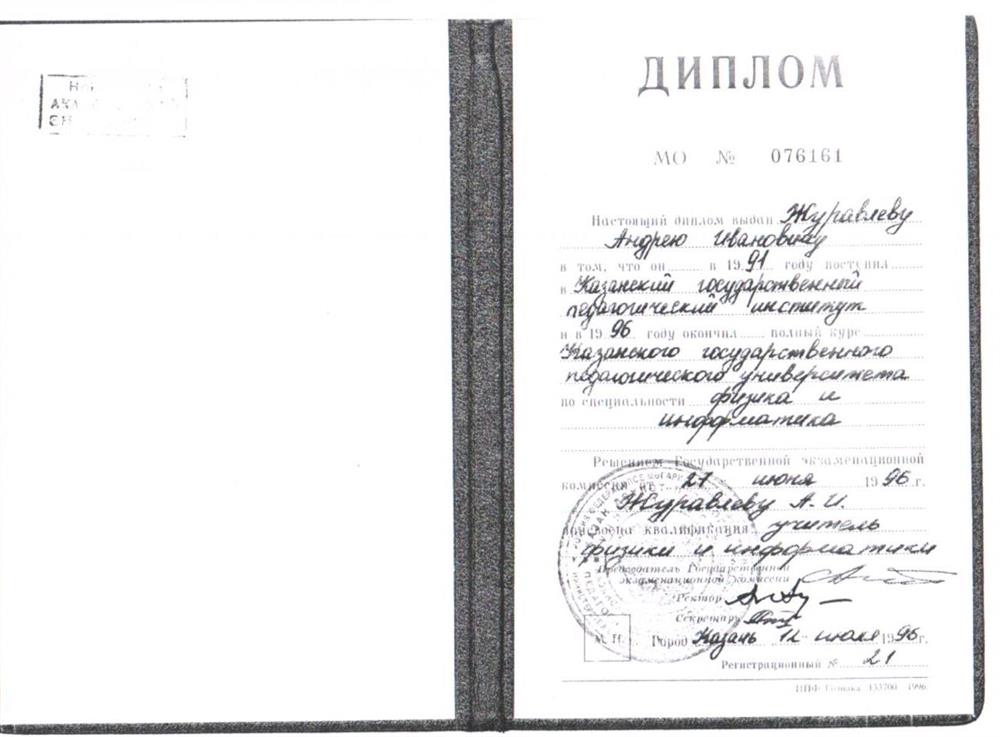 ДИПЛОМ
МО № 076161
Настоящий диплом выдан Журавлеву
Андрею Ивановичу
в том, что он в 1991 году поступил
в Казанский государственный
педагогический институт
и в 1996 году окончил полный курс
Казанского государственного
педагогического университета
по специальности физика и
информатика
Решением Государственной экзаменационной
комиссии от 21 июня 1996 г.
Журавлеву А. И.
присвоена квалификация учитель
физики и информатики
Председатель Государственной
экзаменационной комиссии
Ректор
Секретарь
М. П. Город Казань 12 июля 1996 г.
Регистрационный № 21
ППФ Гознака 1996